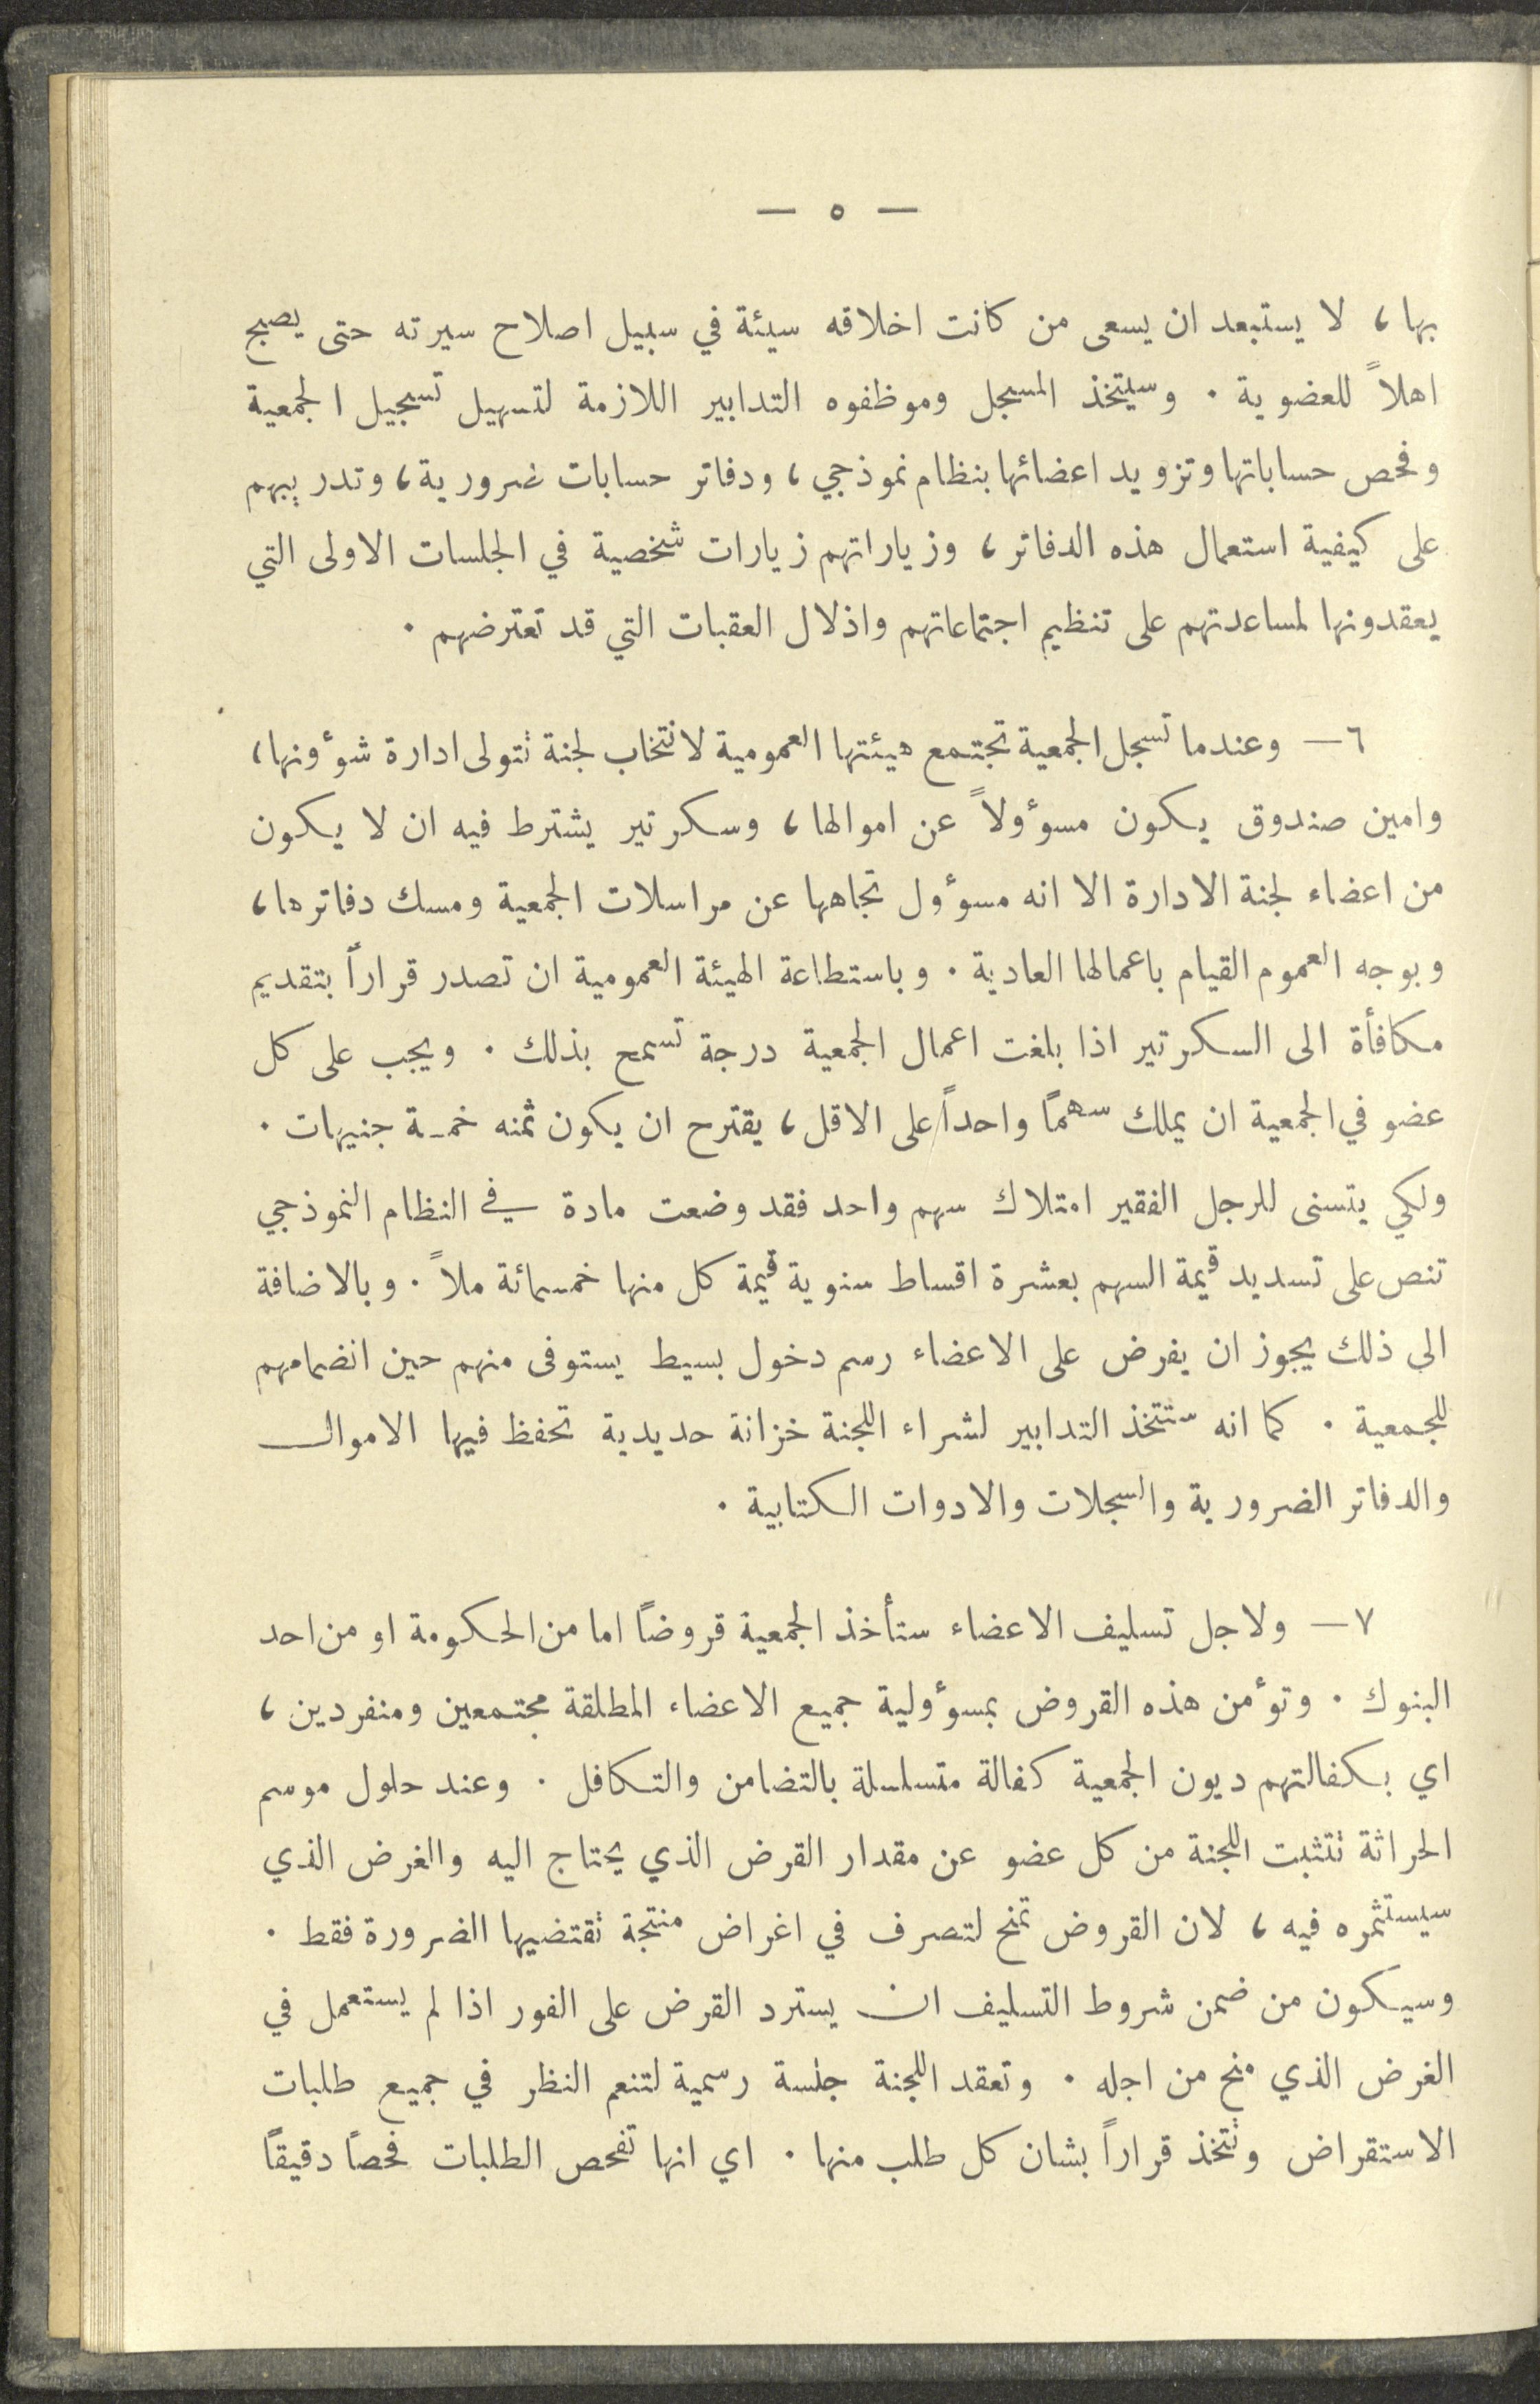 — ٥ —
بها، لا يستبعد ان يسعى من كانت اخلاقه سيئة في سبيل اصلاح سيرته حتى يصبح
اهلاً للعضوية . وسيتخذ المسجل وموظفوه التدابير اللازمة لتسهيل تسجيل الجمعية
وفحص حساباتها وتزويد اعضائها بنظام نموذجي، ودفاتر حسابات ضرورية، وتدريبهم
على كيفية استعمال هذه الدفاتر، وزياراتهم زيارات شخصية في الجلسات الاولى التي
يعقدونها لمساعدتهم على تنظيم اجتماعاتهم واذلال العقبات التي قد تعترضهم .
٦ — وعندما تسجل الجمعية تجتمع هيئتها العمومية لانتخاب لجنة تتولى ادارة شوؤنها،
وامين صندوق يكون مسوؤلاً عن اموالها، وسكرتير يشترط فيه ان لا يكون
من اعضاء لجنة الادارة الا انه مسوؤل تجاهها عن مراسلات الجمعية ومسك دفاترها،
وبوجه العموم القيام باعمالها العادية . وباستطاعة الهيئة العمومية ان تصدر قراراً بتقديم
مكافأة الى السكرتير اذا بلغت اعمال الجمعية درجة تسمح بذلك . ويجب على كل
عضو في الجمعية ان يملك سهماً واحداً على الاقل، يقترح ان يكون ثمنه خمسة جنيهات .
ولكي يتسنى للرجل الفقير امتلاك سهم واحد فقد وضعت مادة في النظام النموذجي
تنص على تسديد قيمة السهم بعشرة اقساط سنوية قيمة كل منها خمسمائة ملاً . وبالاضافة
الى ذلك يجوز ان يفرض على الاعضاء رسم دخول بسيط يستوفى منهم حين انضمامهم
للجمعية . كما انه ستتخذ التدابير لشراء اللجنة خزانة حديدية تحفظ فيها الاموال
والدفاتر الضرورية والسجلات والادوات الكتابية .
٧ — ولاجل تسليف الاعضاء ستأخذ الجمعية قروضاً اما من الحكومة او من احد
البنوك . وتوٴمن هذه القروض بمسوؤلية جميع الاعضاء المطلقة مجتمعين ومنفردين،
اي بكفالتهم ديون الجمعية كفالة متسلسلة بالتضامن والتكافل . وعند حلول موسم
الحراثة تتثبت اللجنة من كل عضو عن مقدار القرض الذي يحتاج اليه والغرض الذي
سيستثمره فيه، لان القروض تمنح لتصرف في اغراض منتجة تقتضيها الضرورة فقط .
وسيكون من ضمن شروط التسليف ان يسترد القرض على الفور اذا لم يستعمل في
الغرض الذي منح من اجله . وتعقد اللجنة جلسة رسمية لتنعم النظر في جميع طلبات
الاستقراض وتتخذ قراراً بشان كل طلب منها . اي انها تفحص الطلبات فحصاً دقيقاً